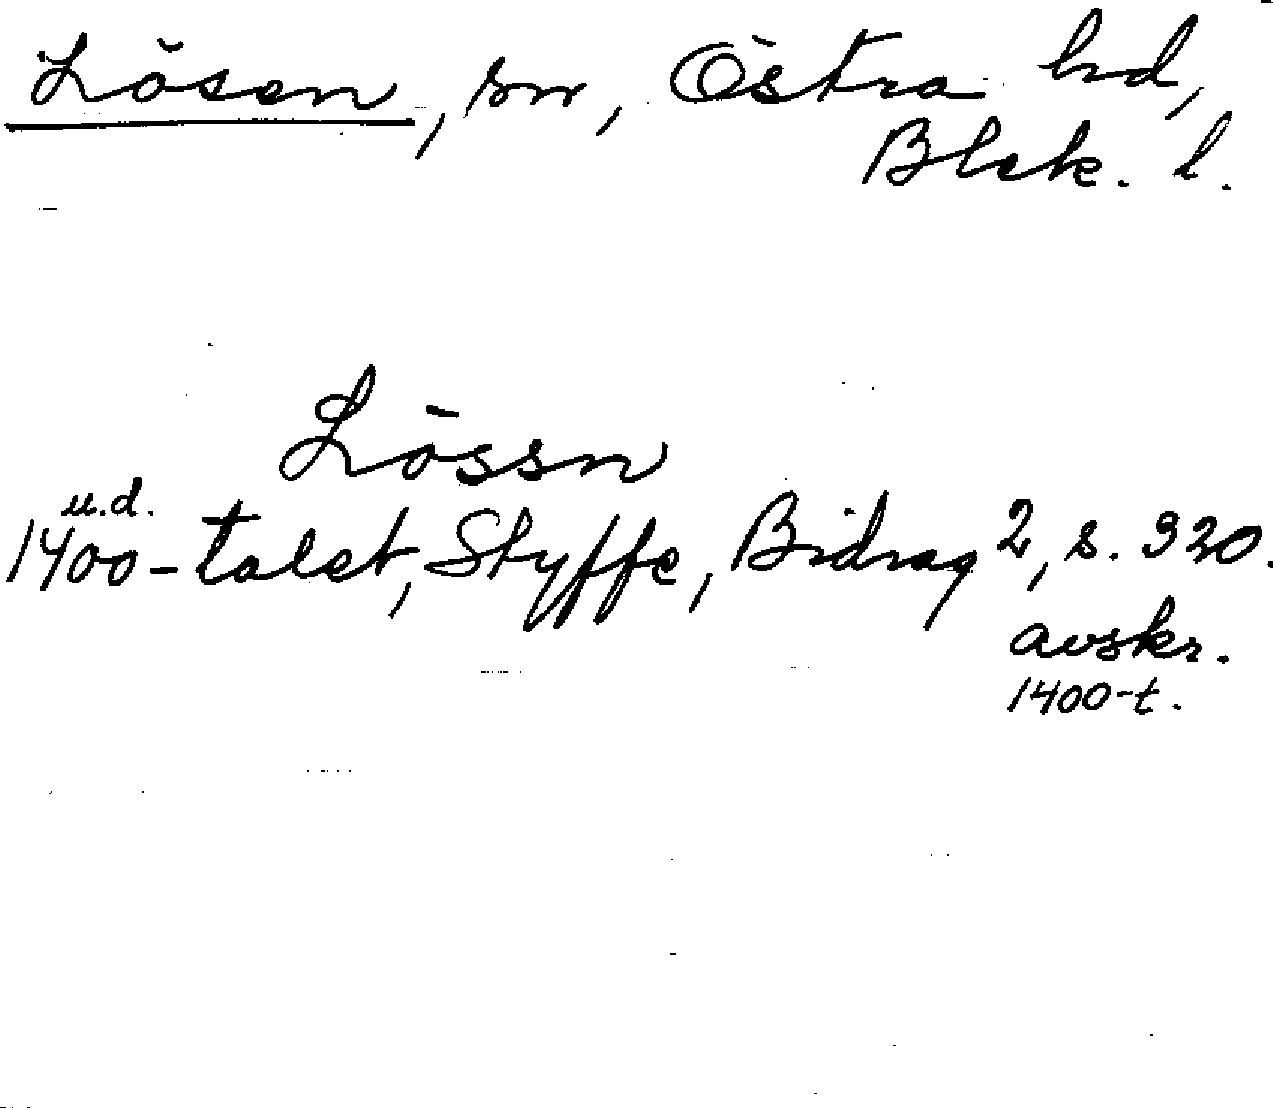 Lösen, sn, Östra hd,
Blek. l.
Lössn
u.d.
1400-talet, Styffe, Bidrag 2, s. 320.
avskr.
1400-t.